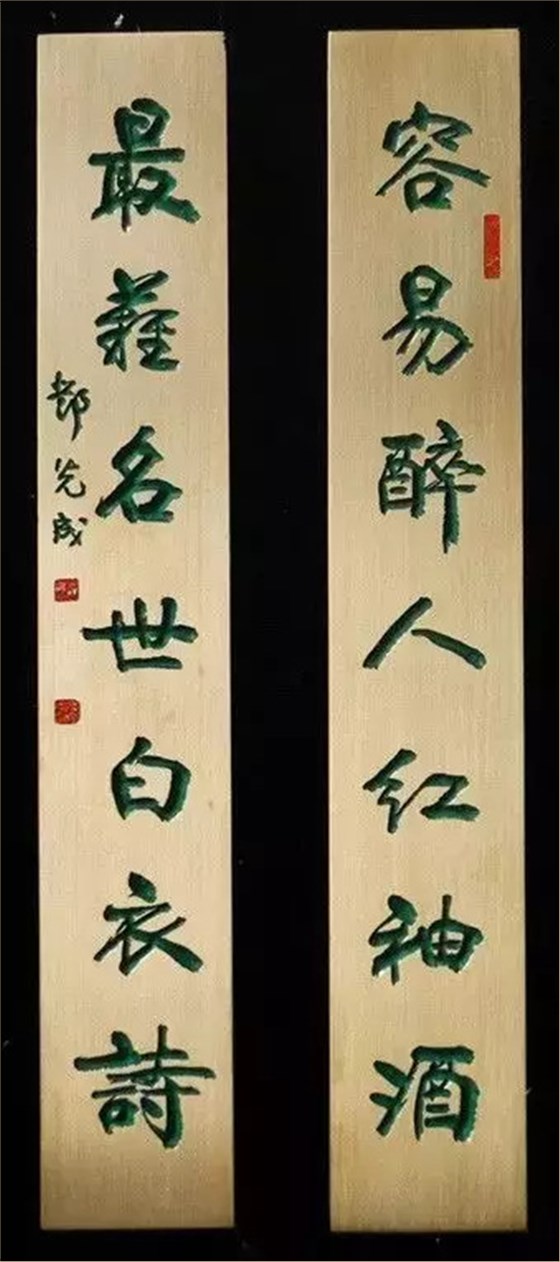 容易醉人红袖酒
最難名世白衣詩
先成